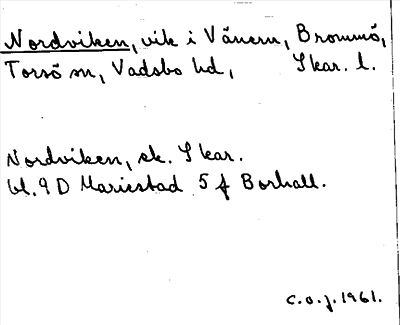 Nordviken, vik i Vänern, Brommö,
Torsö sn, Vadsbo hd, Skar. l.
Nordviken, ek. Skar.
bl. 9 D Mariestad 5 f Borhall.
c.o.j. 1961.